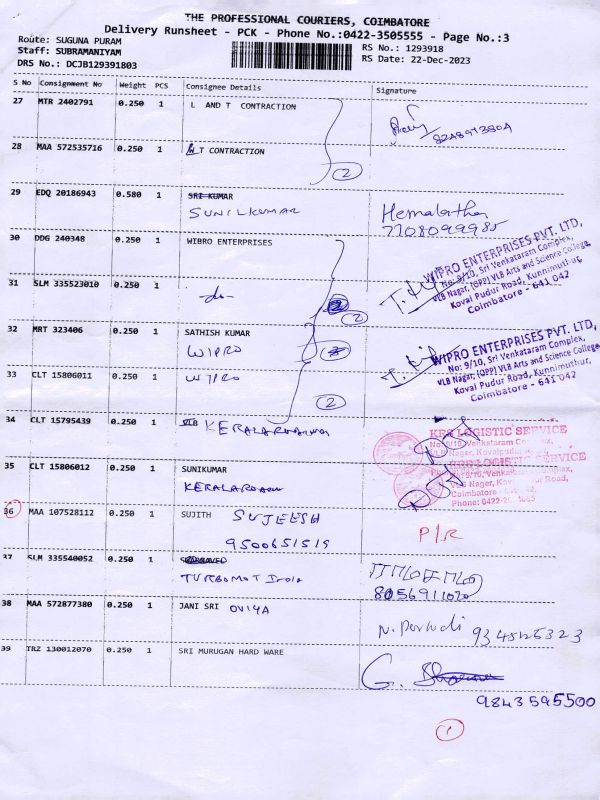 THE PROFESSIONAL COURIERS, COIMBATORE
Delivery Runsheet - PCK - Phone No.:0422-3505555 - Page No.:3
Route: SUGUNA PURAM
Staff: SUBRAMANIYAM
DRS No.: DCJB129391803
RS No.: 1293918
RS Date: 22-Dec-2023
S No Consignment No Weight PCS Consignee Details Signature
27 MTR 2402791 0.250 1 L AND T CONTRACTION
28 MAA 572535716 0.250 1 T CONTRACTION
2
29 EDQ 20186943 0.580 1 SRI KUMAR
SUNILKUMAR
Hemalatha
7708099985
30 DDG 240348 0.250 1 WIBRO ENTERPRISES
WIPRO ENTERPRISES PVT. LTD,
No: 9/10, Sri Venkataram Complex,
VLB Nagar, (OPP) VLB Arts and Science College,
Koval Pudur Road, Kunnimuthur,
Coimbatore - 641 042
31 SLM 335523010 0.250 1 -do-
2
32 MRT 323406 0.250 1 SATHISH KUMAR
WIPRO
WIPRO ENTERPRISES PVT. LTD,
No: 9/10, Sri Venkataram Complex,
VLB Nagar, (OPP) VLB Arts and Science College,
Koval Pudur Road, Kunnimuthur,
Coimbatore - 641 042
33 CLT 15806011 0.250 1 WIPRO
2
34 CLT 15795439 0.250 1 VLB
LOGISTIC SERVICE
35 CLT 15806012 0.250 1 SUNIKUMAR
36 MAA 107528112 0.250 1 SUJITH SUJEESH
9500651519
P/R
37 SLM 335540052 0.250 1
TURBOMOT India
8056911020
38 MAA 572877380 0.250 1 JANI SRI OVIYA
39 TRZ 130012070 0.250 1 SRI MURUGAN HARD WARE
G.
9843595500
1